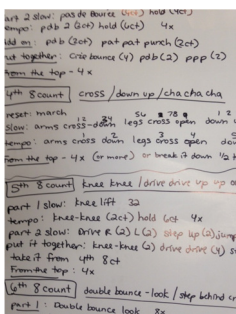 art 2 slow: pas de bource (4ct) hold (4ct)
empo: pdb 2 (2ct) hold (6ct) 4x
dd on: pdb (2ct) pat pat punch (2ct)
ut together: Criss bounce (4) pdb (2) ppp (2)
from the top - 4x
4th 8 count cross / down up / cha cha cha
reset: march
12 34 56 78 9 1 2
Slow: arms cross-down legs cross open down
1 2 3 4
tempo: arms cross down legs cross open dow
From the top - 4x (or more) or break it down 1/2 t
5th 8 count knee knee / drive drive up up
part 1 slow: knee lift 32
tempo: knee-knee (2ct) hold 6ct 4x
part 2 slow: Drive R (2) L (2) step up (2) jump
put it together: knee-knee (2) drive drive (4) s
take it from 4th 8ct
From the top: 4x
6th 8 count double bounce - look / step behind cr
part 1: Double bounce look 8x